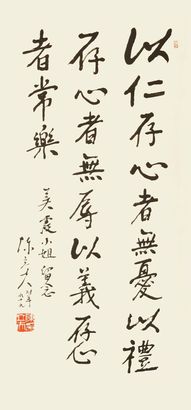 以仁存心者無憂以禮
存心者無辱以義存心
者常樂
美霞小姐留念
陳立夫